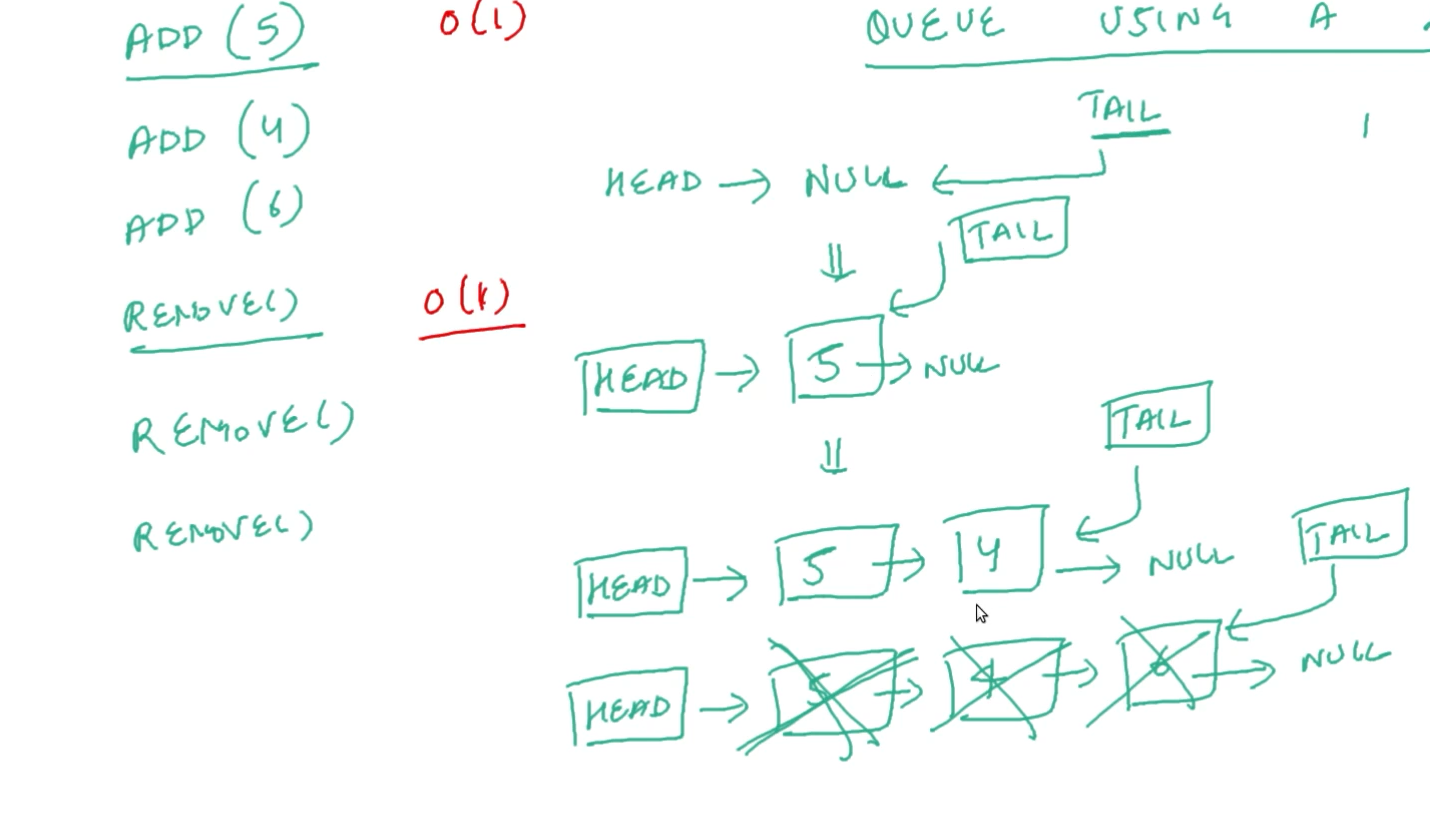 ADD (5) O(1)
ADD (4)
ADD (6)
REMOVE() O(1)
REMOVE()
REMOVE()
QUEUE USING A
TAIL
HEAD → NULL
TAIL
⇓
HEAD → 5 → NULL
⇓
TAIL
HEAD → 5 → 4 → NULL
TAIL
HEAD → 5 → 4 → 6 → NULL